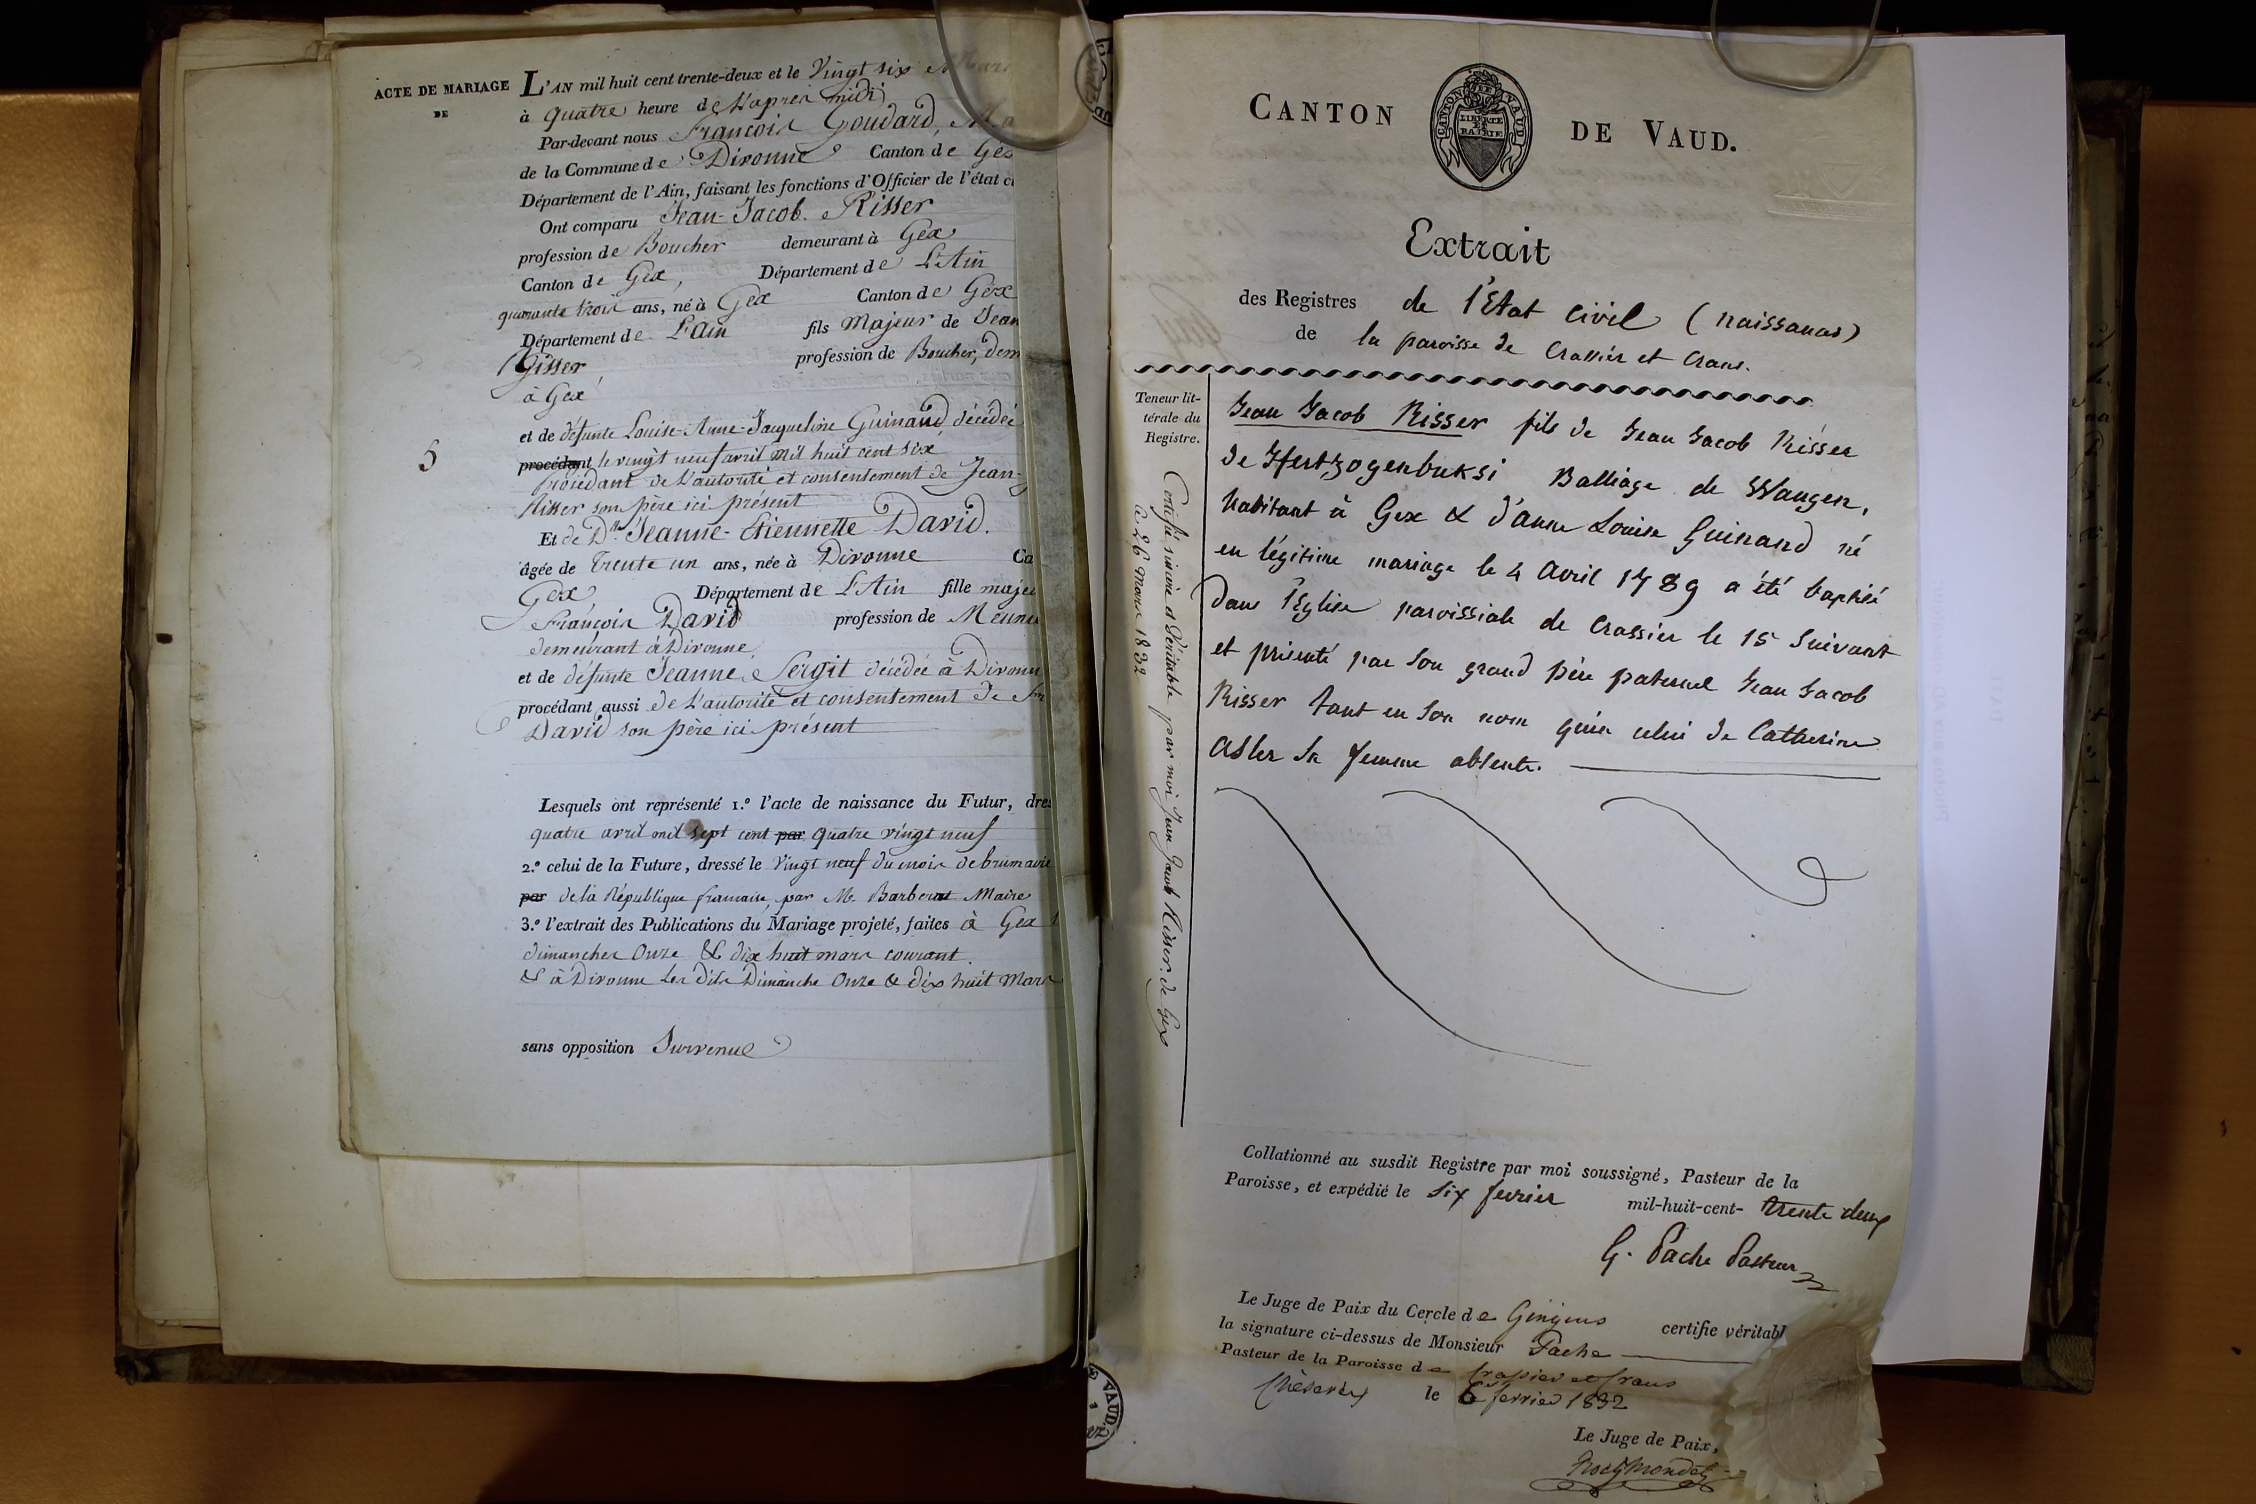 ACTE DE MARIAGE
DE
L'AN mil huit cent trente-deux et le Vingt six Mars
à quatre heure de L'après midi
Par-devant nous François Goudard, Ma
de la Commune de Divonne Canton de Gex
Département de l'Ain, faisant les fonctions d'Officier de l'état ci
Ont comparu Jean-Jacob Risser
profession de Boucher demeurant à Gex
Canton de Gex, Département de L'Ain
quarante trois ans, né à Gex Canton de Gex
Département de L'ain fils Majeur de Jean
Risser profession de Boucher, dem
à Gex
et de défunte Louise-Anne-Jacqueline Guinand décédée
procédant le vingt neuf avril mil huit cent six
procédant de L'autorité et consentement de Jean-J
Risser son père ici présent
5
Et de Dlle Jeanne-Etiennette David.
âgée de Trente un ans, née à Divonne Ca
Gex Département de L'Ain fille majeu
François David profession de Meuni
demeurant à Divonne
et de défunte Jeanne Sergit décédée à Divonn
procédant aussi de L'autorité et consentement de
David son père ici présent
Lesquels ont représenté 1.º l'acte de naissance du Futur, dres
quatre avril mil sept cent par quatre vingt neuf
2.º celui de la Future, dressé le Vingt neuf du mois de brumaire
par de la République française, par M. Maire
3.º l'extrait des Publications du Mariage projeté, faites à Gex l
dimanches Onze & dix huit mars courant.
& à Divonne les dits Dimanche Onze & dix huit Mars
sans opposition Survenue
CANTON DE VAUD.
CANTON DE VAUD
LIBERTE
ET
PATRIE
Extrait
des Registres de l'Etat civil (naissances)
de la paroisse de Crassier et Crans.
Teneur lit-
térale du
Registre.
Jean Jacob Risser fils de Jean Jacob Risser
de Hertzogenbuksi Balliage de Wangen,
habitant à Gex & d'anne Louise Guinand né
en légitime mariage le 4 Avril 1789 a été baptisé
dans l'Eglise paroissiale de Crassier le 15 suivant
et présenté par son grand père paternel Jean Jacob
Risser tant en son nom qu'en celui de Catherine
Asler sa femme absente.
Certifié sincère et Véritable par moi Jean Jacob Risser de Gex
a 26 mars 1832
Collationné au susdit Registre par moi soussigné, Pasteur de la
Paroisse, et expédié le six fevrier mil-huit-cent- trente deux
G. Pache Pasteur
Le Juge de Paix du Cercle de Gingins certifie véritabl
la signature ci-dessus de Monsieur Pache
Pasteur de la Paroisse de Crassier et Crans
Chéserex le 6 fevrier 1832
Le Juge de Paix,
VAUD.